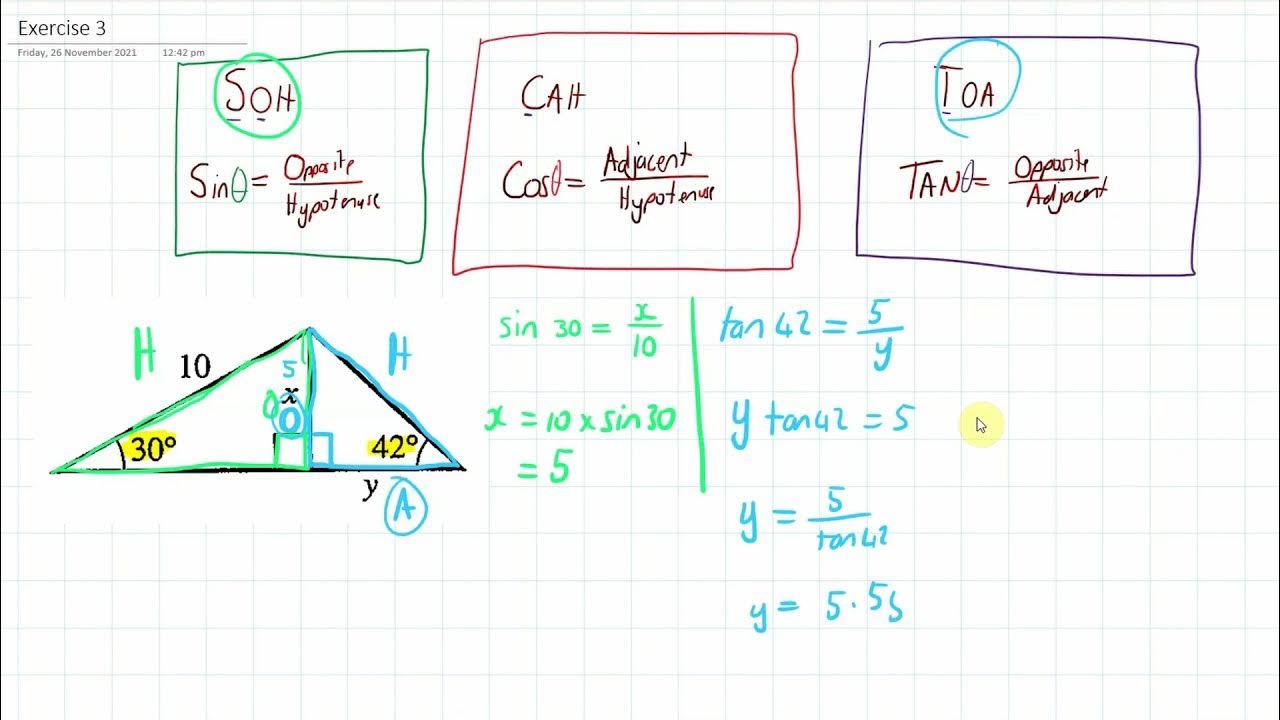 Exercise 3
Friday, 26 November 2021 12:42 pm
SOH
Sinθ = Opposite / Hypotenuse
CAH
Cosθ = Adjacent / Hypotenuse
TOA
TANθ = Opposite / Adjacent
H
10
5
x
O
O
30°
H
42°
y
A
sin 30 = x / 10
x = 10 x sin 30
= 5
tan 42 = 5 / y
y tan 42 = 5
y = 5 / tan 42
y = 5.55